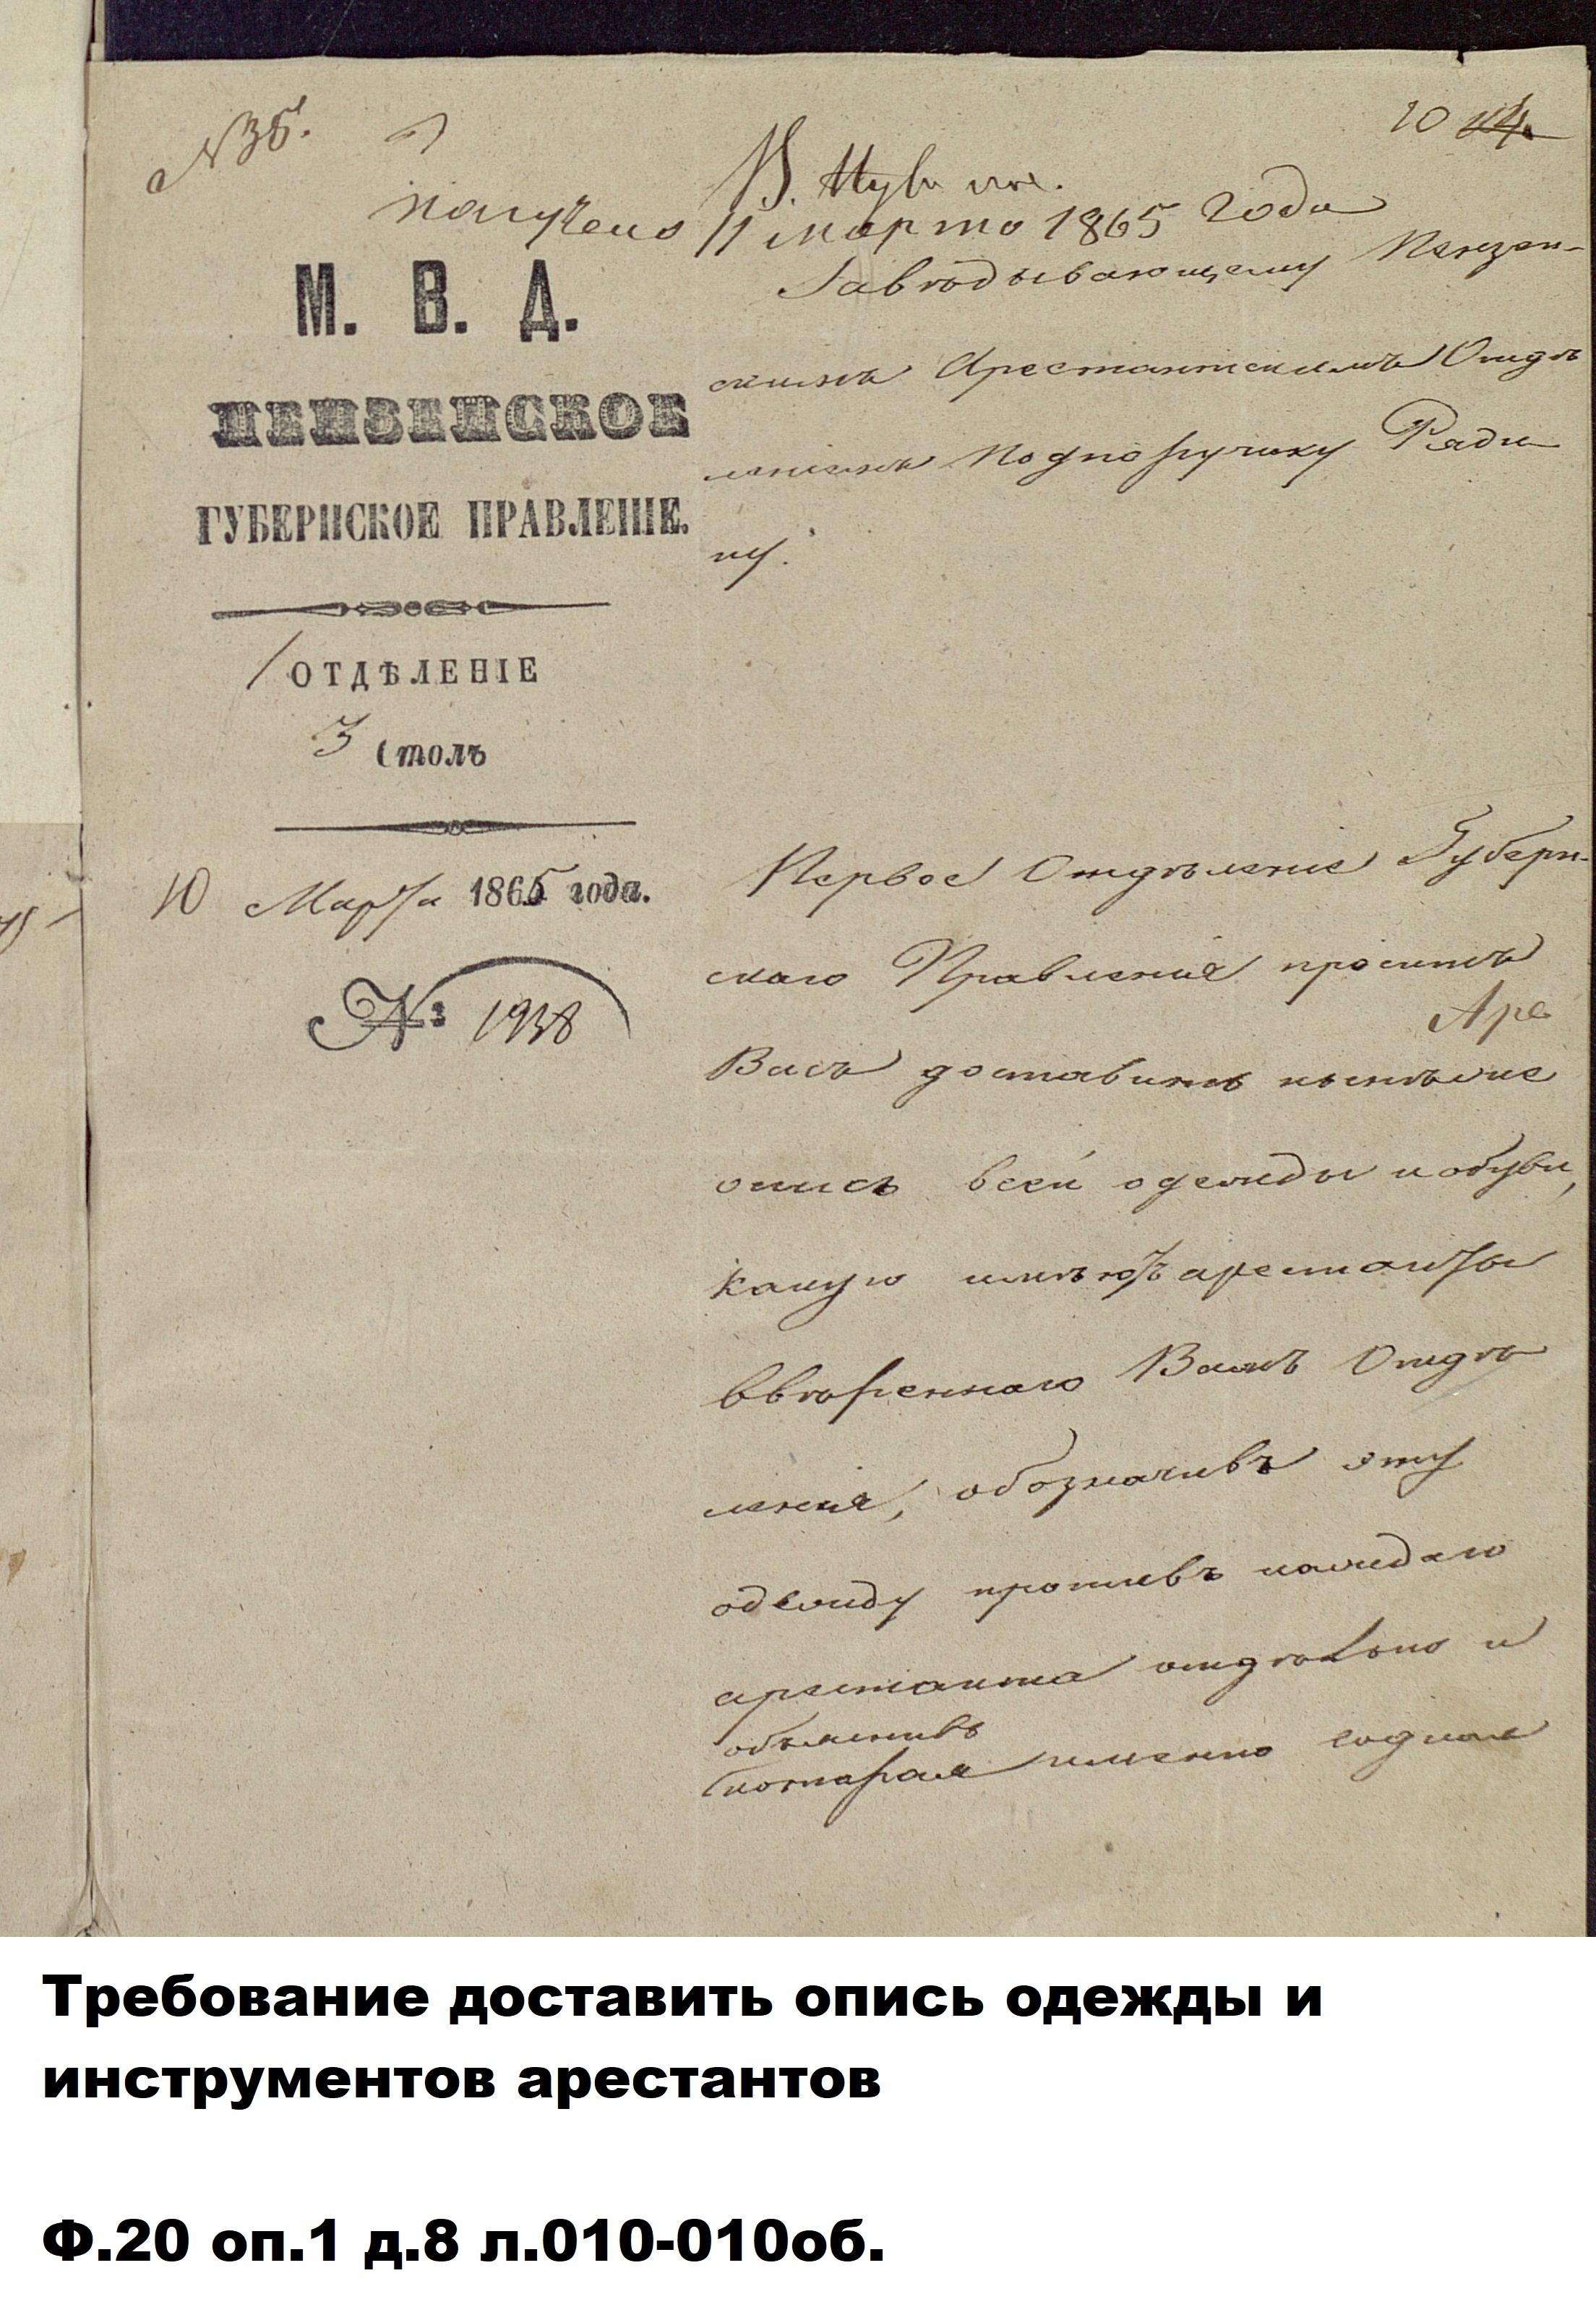 № 35.
10 14
В. Нуж
получено 11 марта 1865 года
М. В. Д.
ПЕНЗЕНСКОЕ
ГУБЕРНСКОЕ ПРАВЛЕНІЕ.
1 ОТДѢЛЕНІЕ
3 Столъ
10 Марта 1865 года.
№ 1938
Завѣдывающему Пензен-
скимъ Арестантскимъ Отдѣ
леніемъ Подпоручику Ряди
ну.
Первое Отдѣленіе Губерн-
скаго Правленія проситъ
Аре
Васъ доставить
опись всей одежды и обуви,
какую имѣютъ арестанты
ввѣреннаго Вамъ Отдѣ
ленія, обозначивъ эту
одежду противъ каждаго
арестанта отдѣльно и
объяснивъ
которая именно годная
Требование доставить опись одежды и
инструментов арестантов
Ф.20 оп.1 д.8 л.010-010об.